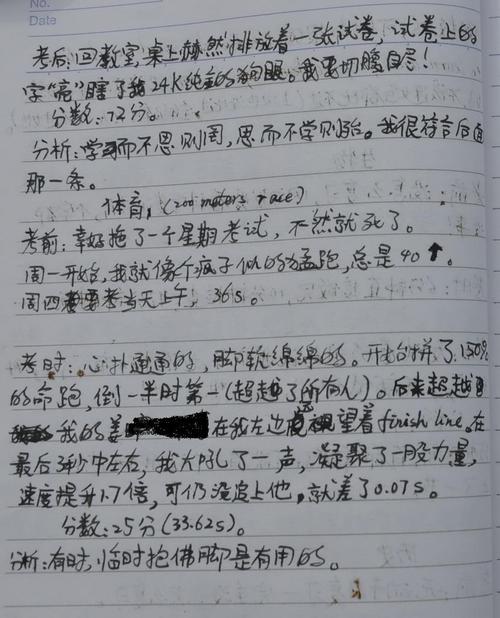 No.
Date
考后:回教室,桌上赫然排放着一张试卷,试卷上的
字“亮”瞎了我24K纯金的狗眼。我要切腹自尽!
分数:72分。
分析:学而不思则罔,思而不学则殆。我很符合后面
那一条。
体育,(200 meters race)
考前:幸好拖了一个星期考试,不然就死了。
周一开始,我就像个疯子似的猛跑,总是40↑。
周四要考当天上午,36s。
考时:心扑通通的,脚软绵绵的。开始拼了150%
的命跑,倒一半时第一(超越了所有人)。后来超越
我的姜 在我左边 望着finish line。在
最后3秒中左右,我大吼了一声,凝聚了一股力量,
速度提升1.7倍,可仍没追上他,就差了0.07s。
分数:25分(33.62s)。
分析:有时,临时抱佛脚是有用的。